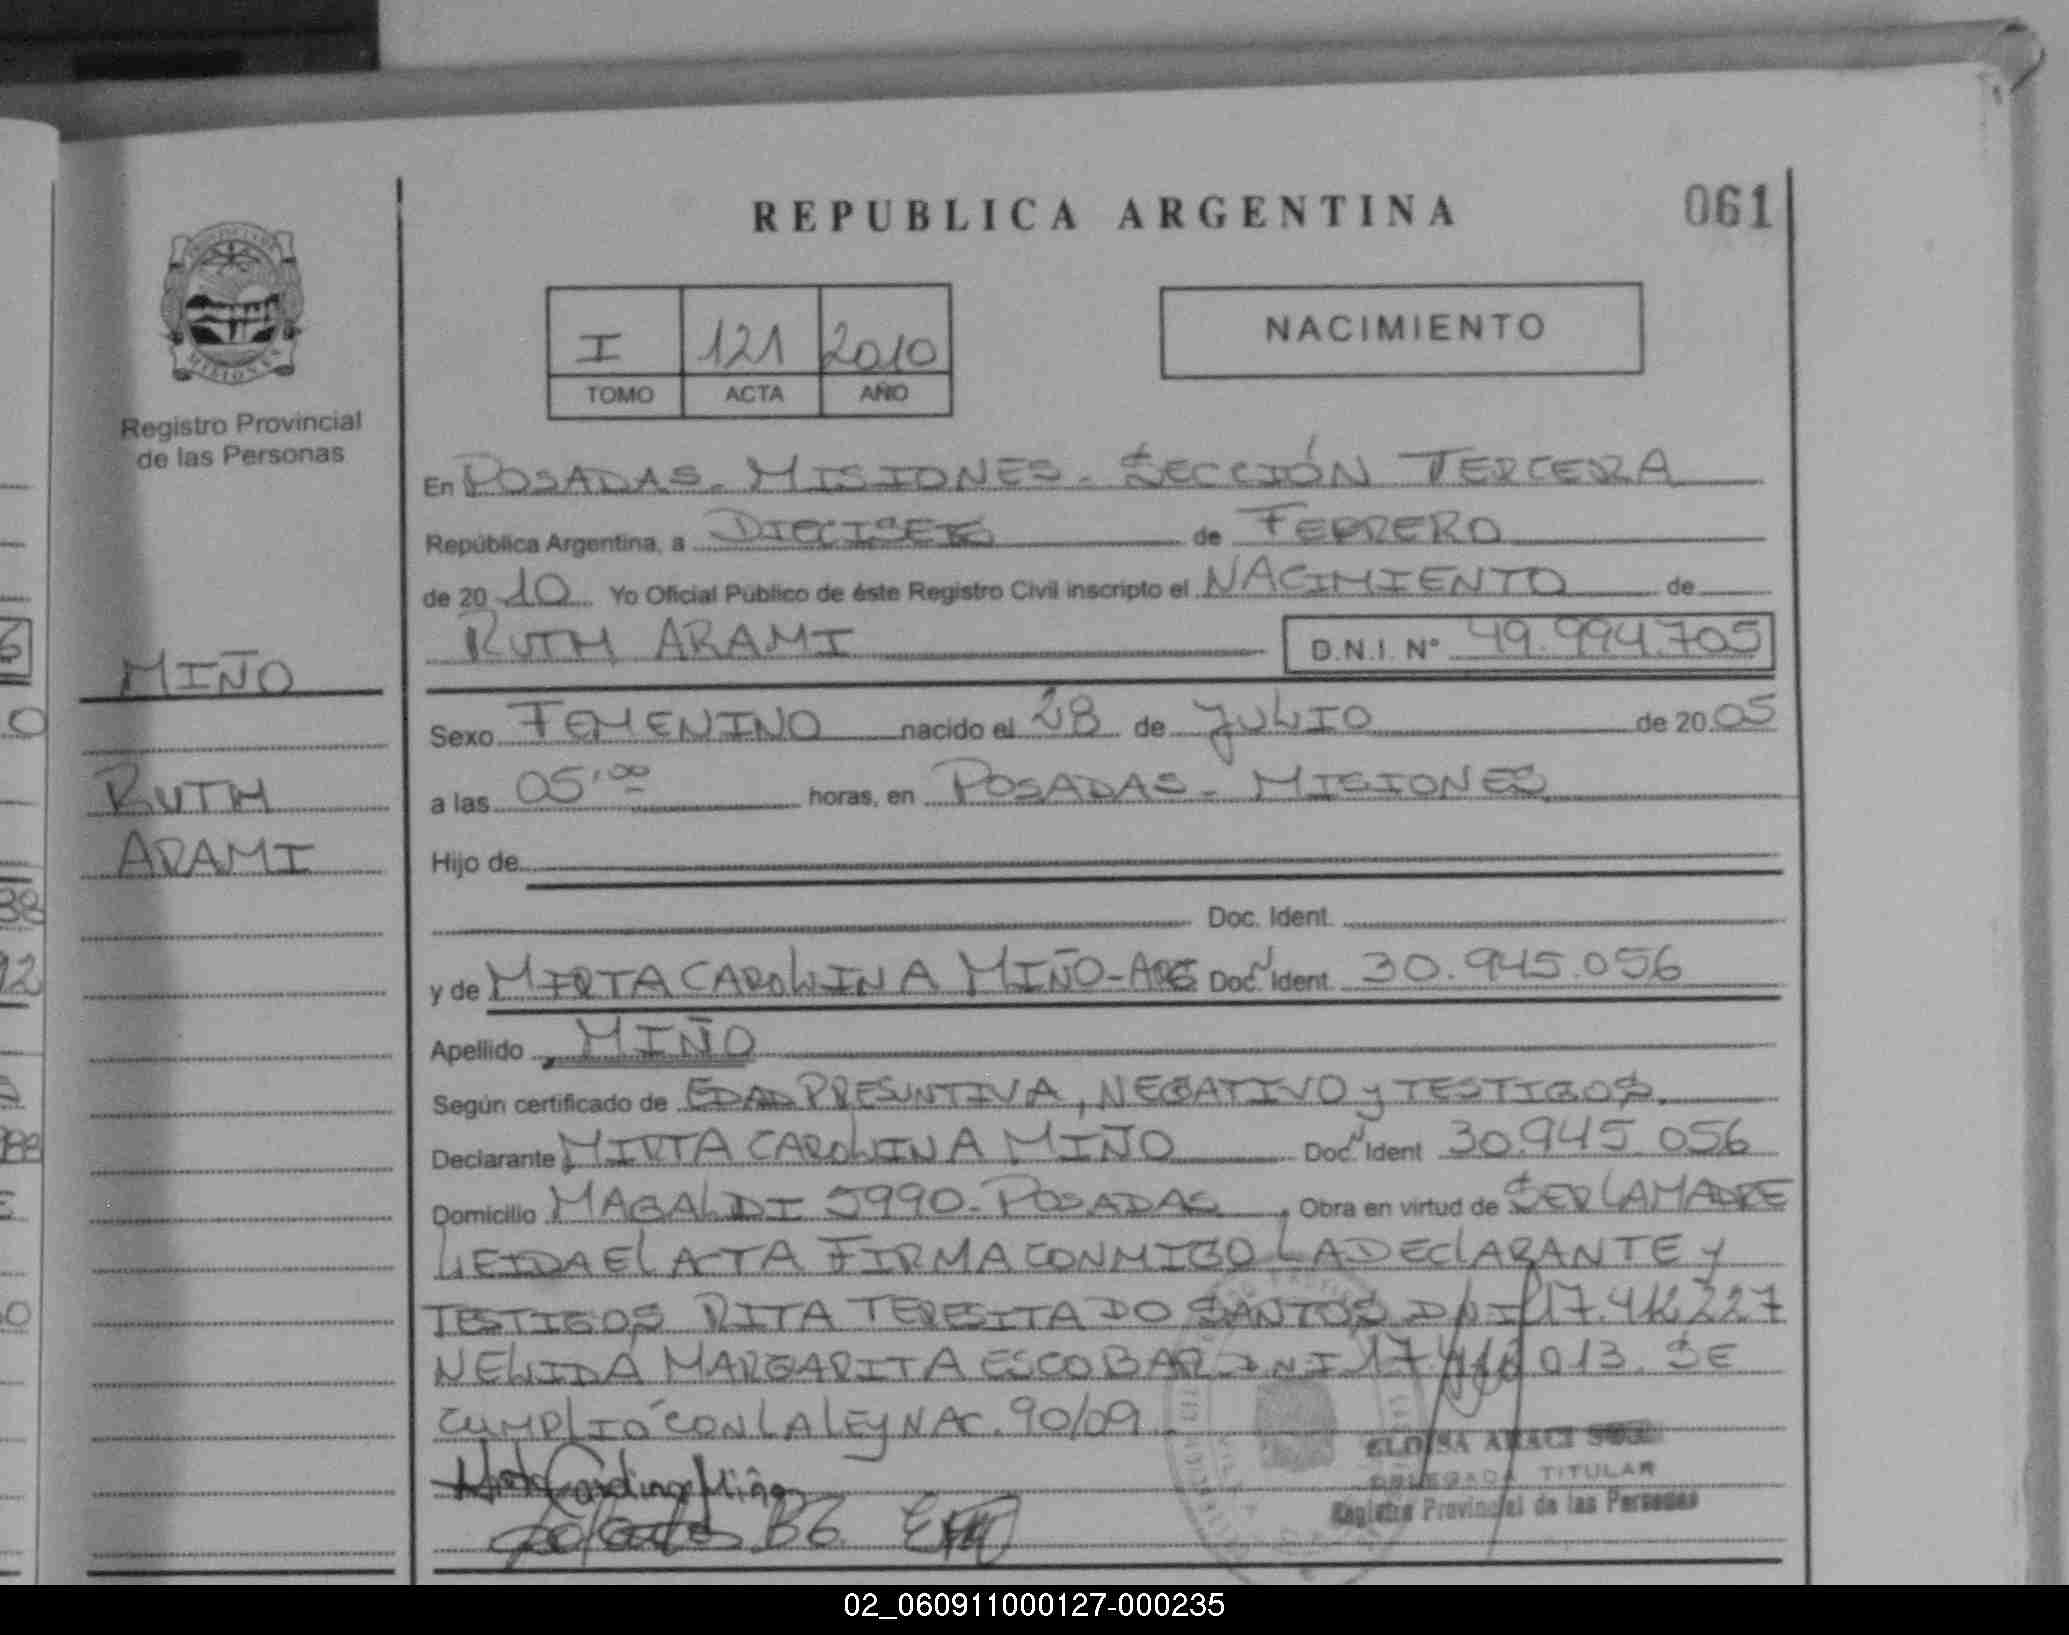 REPUBLICA ARGENTINA
061
I 121 2010
TOMO ACTA AÑO
NACIMIENTO
MISIONES
Registro Provincial
de las Personas
En POSADAS - MISIONES - SECCIÓN TERCERA
República Argentina, a DIECISEIS de FEBRERO
de 20 10 Yo Oficial Público de éste Registro Civil inscripto el NACIMIENTO de
RUTH ARAMI D.N.I. Nº 49.994.705
MIÑO
Sexo FEMENINO nacido el 28 de JULIO de 20 05
RUTH
a las 05,00 horas, en POSADAS - MISIONES
ARAMI
Hijo de
Doc. Ident.
y de MIRTA CAROLINA MIÑO - ARG Doc. Ident. 30.945.056
Apellido MIÑO
Según certificado de EDAD PRESUNTIVA, NEGATIVO y TESTIGOS.
Declarante MIRTA CAROLINA MIÑO Doc. Ident 30.945.056
Domicilio MAGALDI 5990 - POSADAS, Obra en virtud de SER LA MADRE
LEIDA EL ATA FIRMA CONMIGO LA DECLARANTE y
TESTIGOS RITA TERESITA DO SANTOS DNI 17.412.227
NELIDA MARGARITA ESCOBAR DNI 17. 013. SE
CUMPLIÓ CON LA LEY NAC. 90/09
Mirta Carolina Miño
DELEGADA TITULAR
Registro Provincial de las Personas
02_060911000127-000235